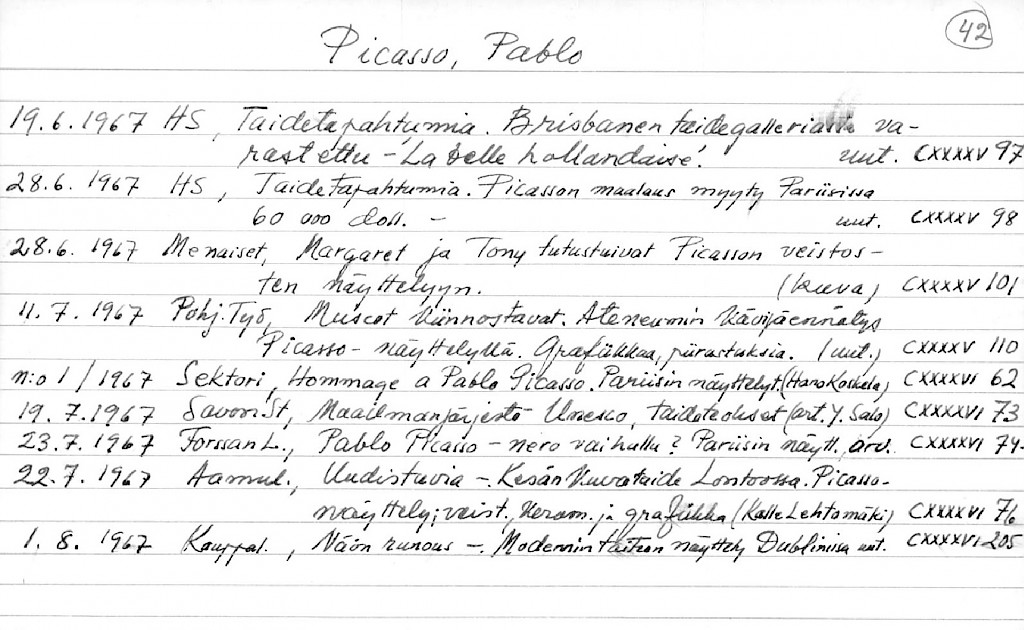 42
Picasso, Pablo
19.6.1967 HS, Taidetapahtumia. Brisbanen taidegalleriasta va-
rastettu – La belle hollandaise. uut. CXXXXV 97
28.6. 1967 HS, Taidetapahtumia. Picasson maalaus myyty Pariisissa
60 000 doll. – uut. CXXXXV 98
28.6. 1967 Me naiset, Margaret ja Tony tutustuivat Picasson veistos-
ten näyttelyyn. (kuva) CXXXXV 101
11. 7. 1967 Pohj. Työ, Museot kiinnostavat. Ateneumin kävijäennätys
Picasso-näyttelyllä. Grafiikkaa, piirustuksia. (uut.) CXXXXV 110
n:o 1 / 1967 Sektori, Hommage a Pablo Picasso. Pariisin näyttelyt. (Harro Koskela) CXXXXVI 62
19. 7. 1967 Savon St, Maailmanjärjestö Unesco, taideteokset (art. Y. Salo) CXXXXVI 73
23.7. 1967 Forssan L., Pablo Picasso – nero vai hullu? Pariisin näytt. arv. CXXXXVI 74
22.7. 1967 Aamul., Uudistuvia – Kesän kuvataide Lontoossa. Picasso-
näyttely; veist., keram. ja grafiikka (Kalle Lehtomäki) CXXXXVI 76
1. 8. 1967 Kauppal., Näön runous –. Modernin taiteen näyttely Dublinissa uut. CXXXXVI 205